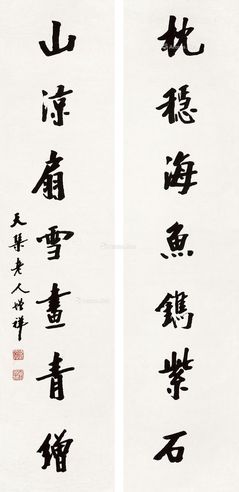 枕穩海魚鐫紫石
山涼扇雪畫青繒
天琴老人增祥